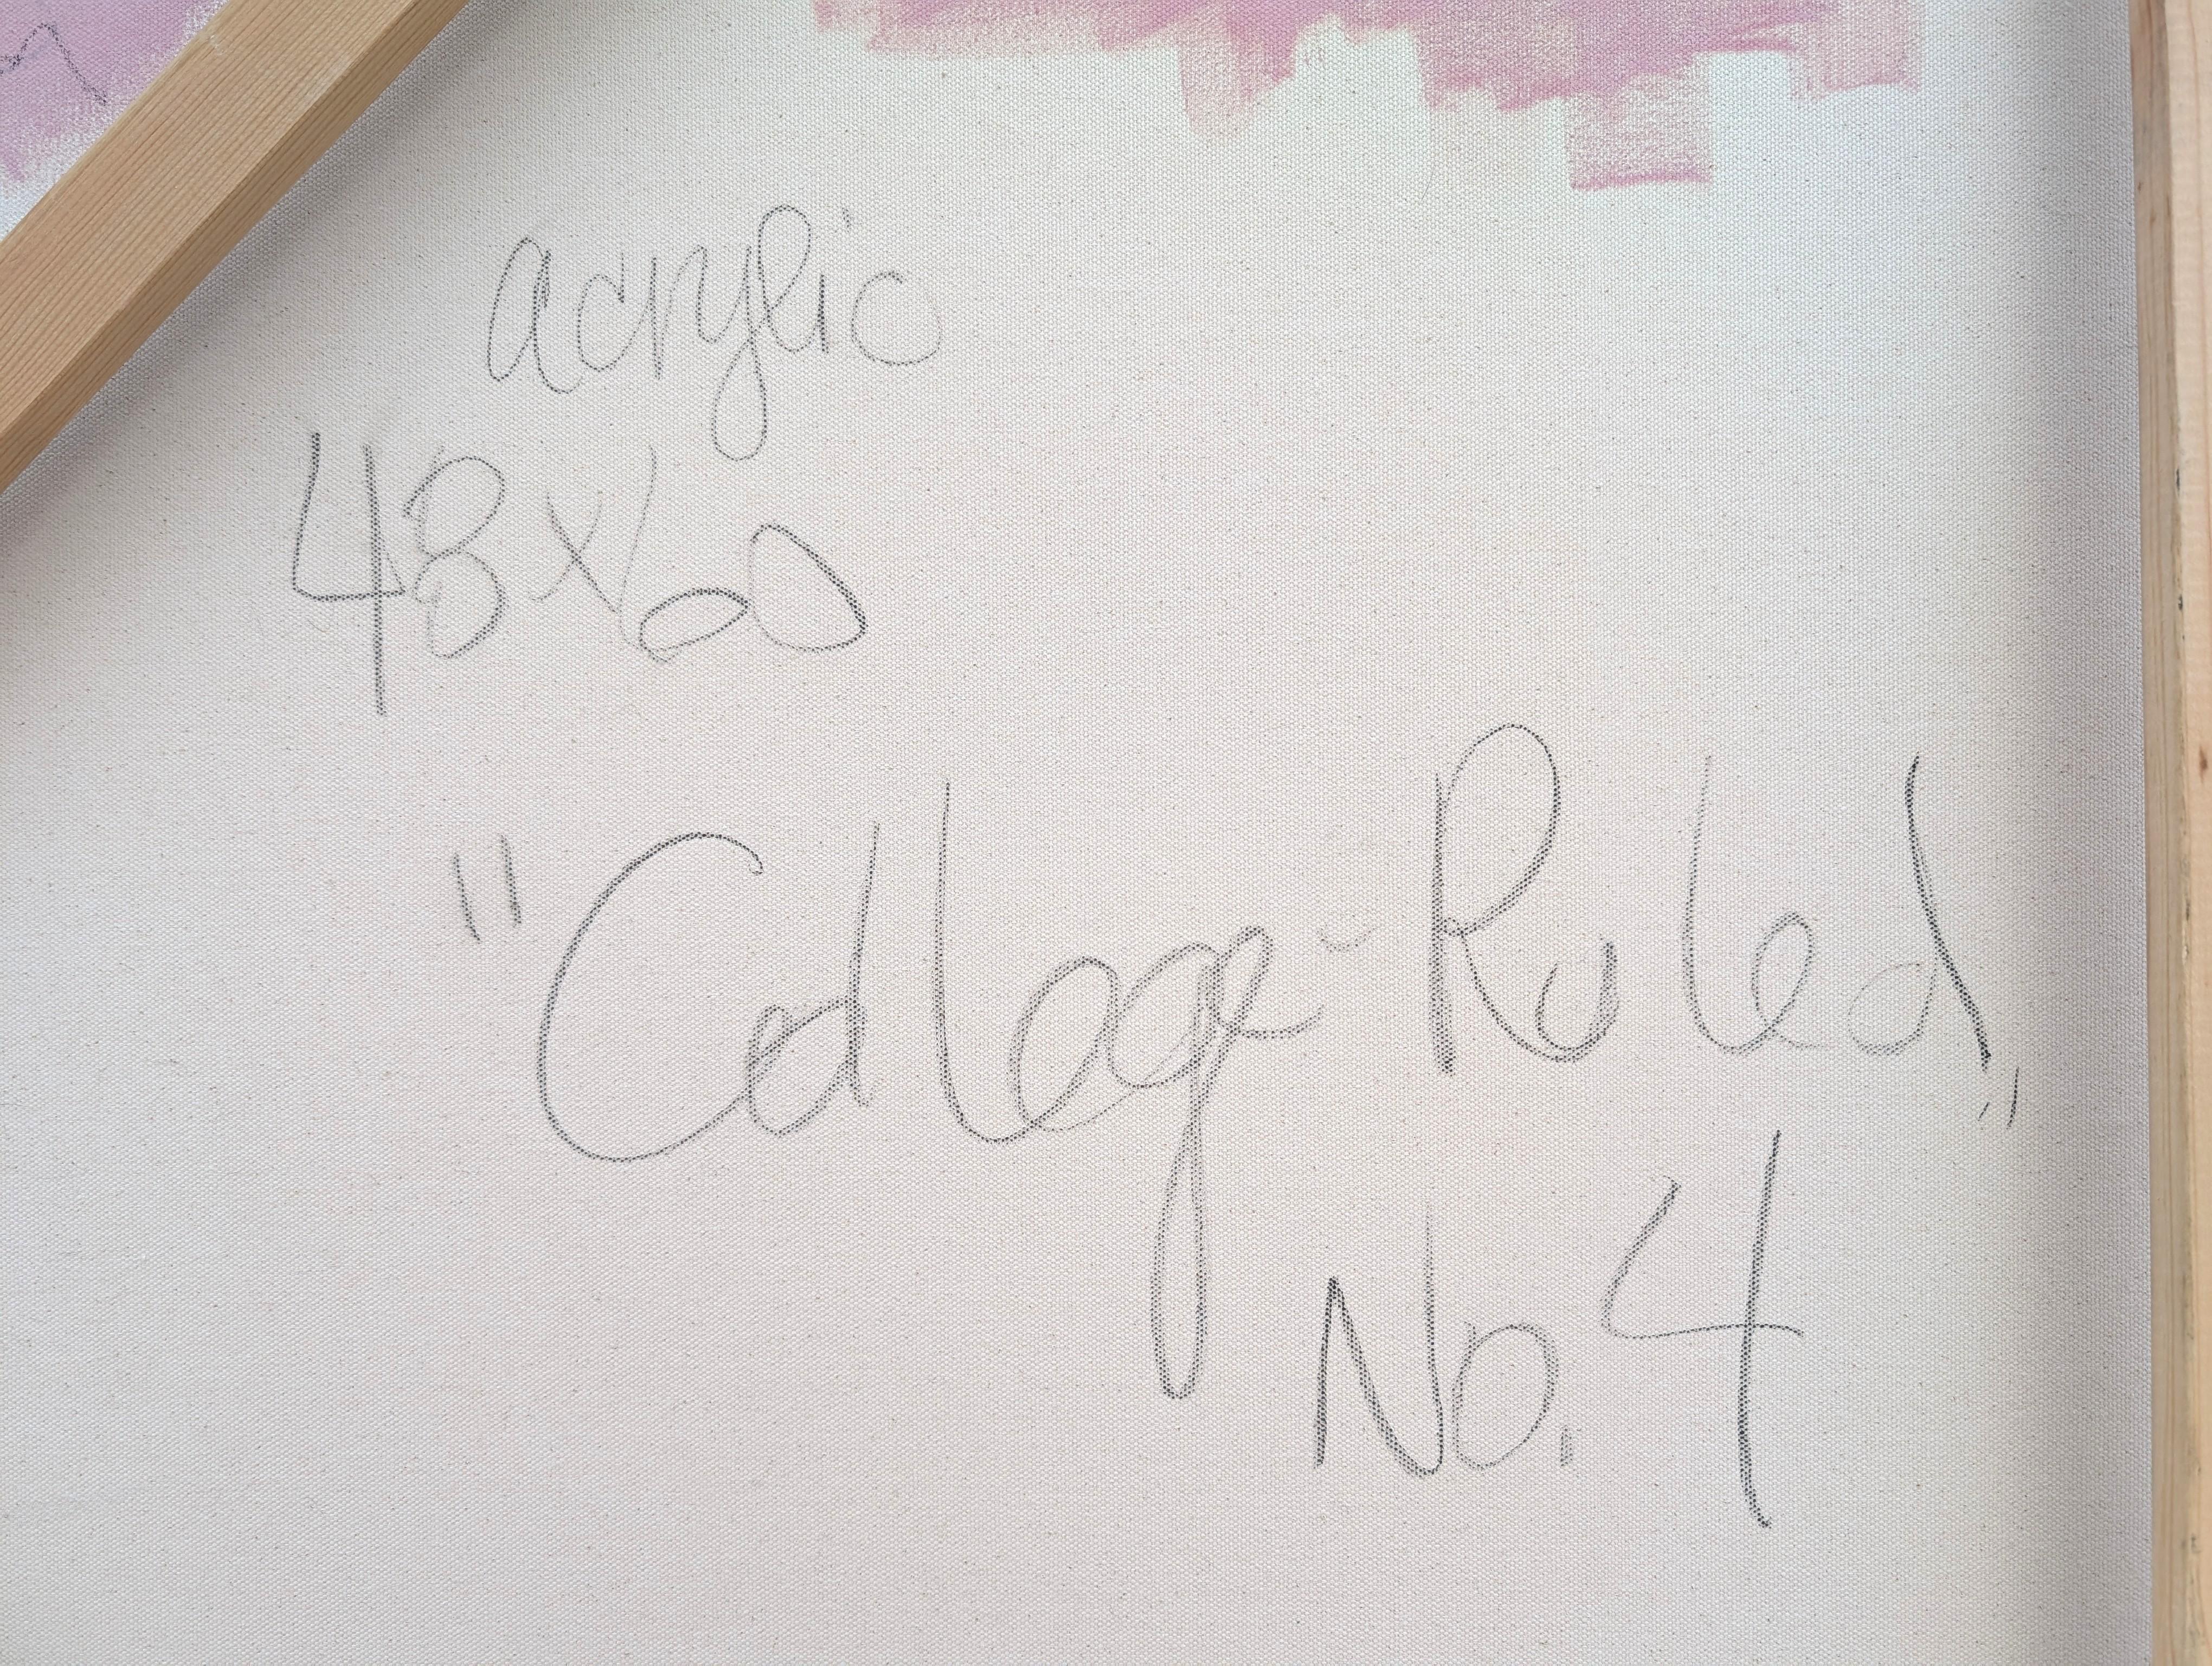 acrylic
48x60
"College-Ruled"
No. 4